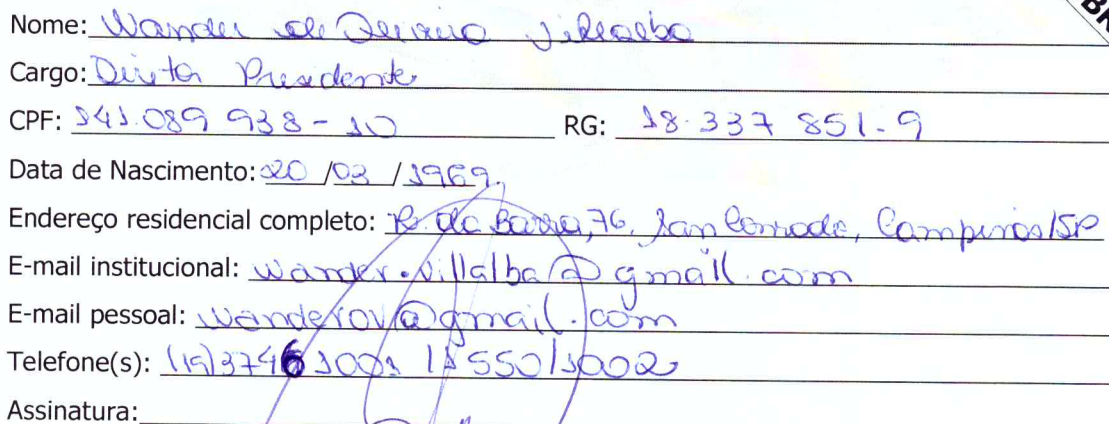 Nome: Wander de Oliveira Villalba
Cargo: Diretor Presidente
CPF: 141.089 938-10 RG: 18.337 851-9
Data de Nascimento: 20 /03 /1969
Endereço residencial completo: R. da Barra, 76, San Conrado, Campinas/SP
E-mail institucional: wander.villalba@gmail.com
E-mail pessoal: wanderov@gmail.com
Telefone(s): (19) 3746 1001 / 1550 / 1002
Assinatura: